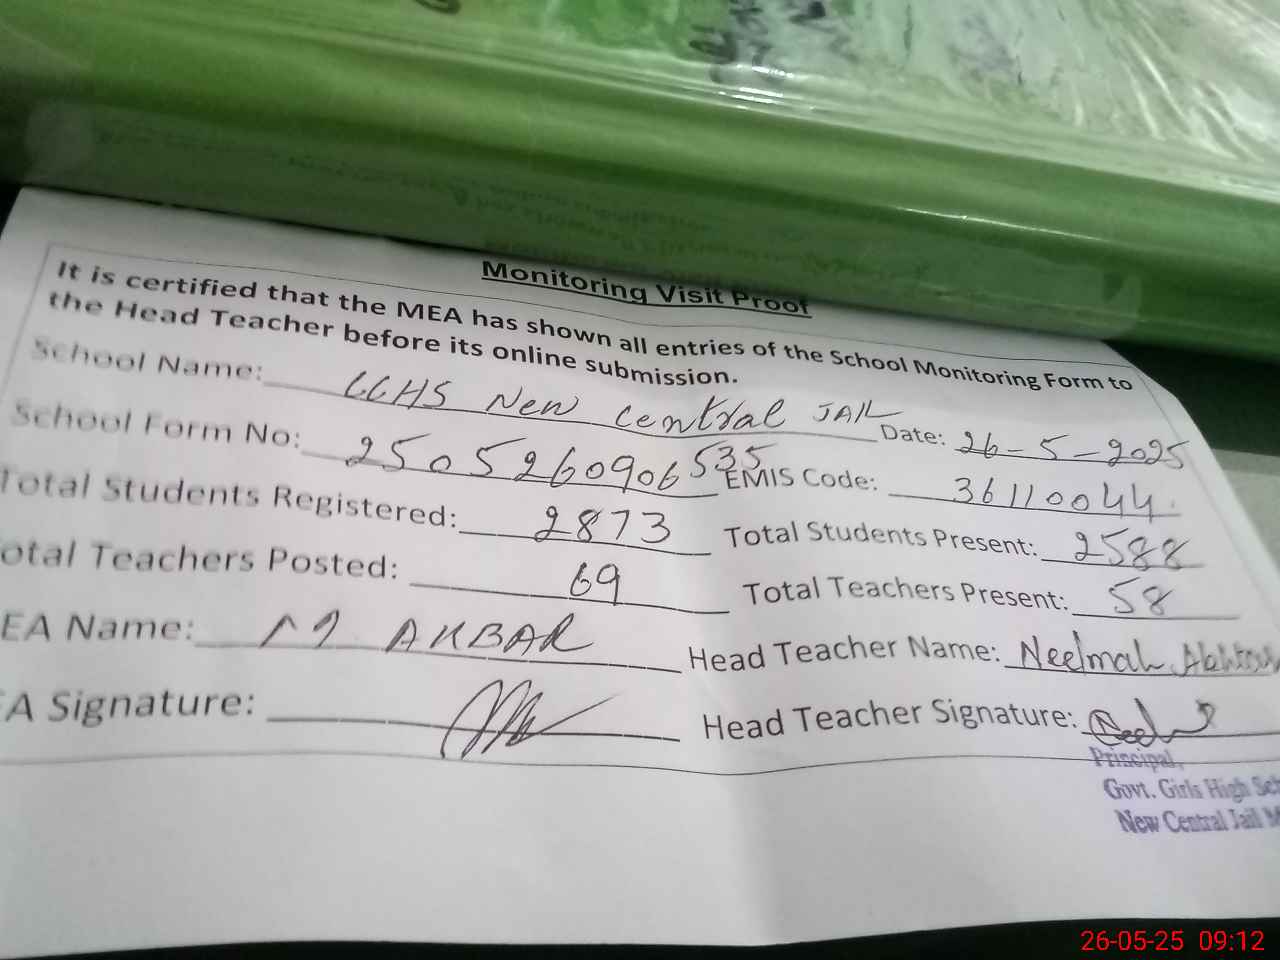 Monitoring Visit Proof
It is certified that the MEA has shown all entries of the School Monitoring Form to
the Head Teacher before its online submission.
School Name: GGHS New Central JAIL Date: 26-5-2025
School Form No: 2505260906535 EMIS Code: 36110044
Total Students Registered: 2873 Total Students Present: 2588
otal Teachers Posted: 69 Total Teachers Present: 58
EA Name: M. AKBAR Head Teacher Name: Neelmah
A Signature: Head Teacher Signature:
Principal,
Govt. Girls High Sch
New Central Jail M
26-05-25 09:12